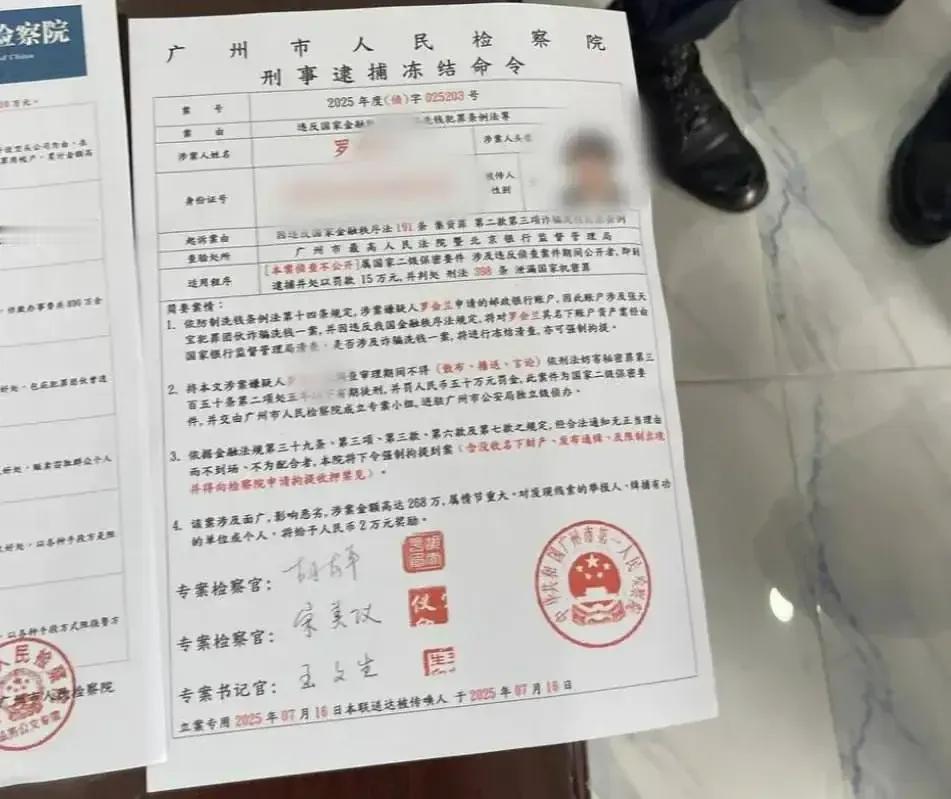 检察院
of China
万元。
开设空头公司为由,本
票用帐户,累计金额高
好处,包庇犯罪团伙曾进
好处,贩卖笞批群众个人
好处,以各种手段方是阻
,以各种手段方式阻挠警方
广州市人民检察院
广州市人民检察院
刑事逮捕冻结命令
案号
2025年度(侦)字025203号
案由
违反国家金融
洗钱犯罪条例法等
涉案人姓名
罗
涉案人头
身份证号
被传人
性别
起诉案由
因违反国家金融秩序法191条 集资罪 第二款第三项诈骗
条例
查验处所
广州市最高人民法院暨北京银行监督管理局
适用程序
[本案侦查不公开]属国家二级保密要件 涉及违反侦查案件期间公开者,即刻
逮捕并处以罚款 15万元,并判处 刑法 398 条 泄漏国家机密罪
简要案情:
1. 依防制洗钱条例法第十四条规定,涉案嫌疑人罗会兰申请的邮政银行账户,因此账户涉及张天
宝犯罪团伙诈骗洗钱一案,并因违反我国金融秩序法规定,将对罗会兰其名下账户资产案经由
国家银行监督管理局清查,是否涉及诈骗洗钱一案,将进行冻结清查,亦可强制拘提。
2. 将本文涉案嫌疑人罗
查审理期间不得(散布、播送、言论)依刑法妨害秘密罪第三
百五十条第二项处五年
有期徒刑,并罚人民币五十万元罚金,此案件为国家二级保密要
件,并交由广州市人民检察院成立专案小组,进驻广州市公安局独立侦办。
3. 依据金融法规第三十九条、第三项、第三款、第六款及第七款之规定,经合法通知无正当理由
而不到场、不为配合者,本院将下令强制拘提到案(含没收名下财产、发布通缉、及限制出境
并得向检察院申请拘提收押禁见)。
4. 该案涉及面广,影响恶劣,涉案金额高达268万,属情节重大。对发现线索的举报人、缉捕有功
的单位或个人,将给于人民币2万元奖励。
专案检察官:
专案检察官:
宋美仪
专案书记官:
王文生
中华共和国广州市第一人民检察院
立案专用 2025年07月16日本联送达被传唤人 于 2025年07月16日